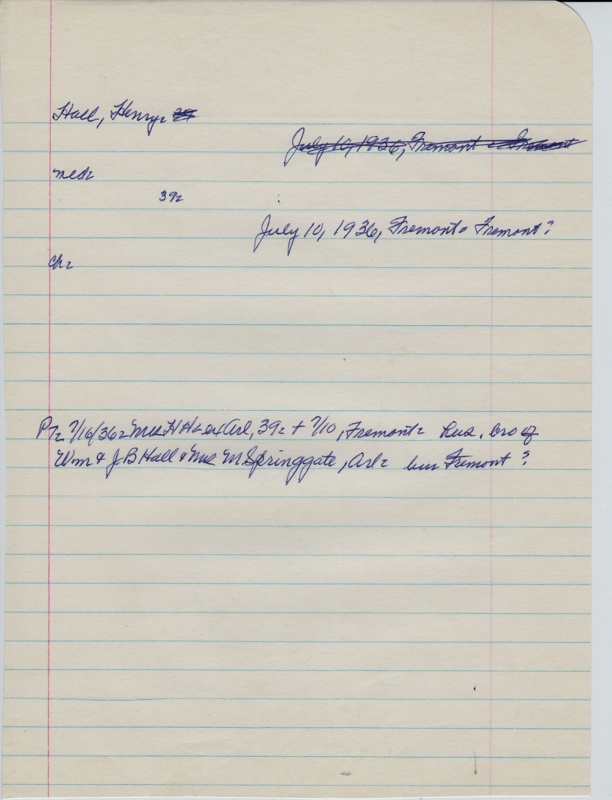 Hall, Henry-
July 10, 1936, Fremont - Fremont
med-
39-
July 10, 1936, Fremont - Fremont?
ch-
P/- 7/16/36- Mrs H H ex Arl, 39- + 7/10, Fremont- Hus. bro of
Wm & J B Hall & Mrs M Springgate, Arl- bur Fremont?